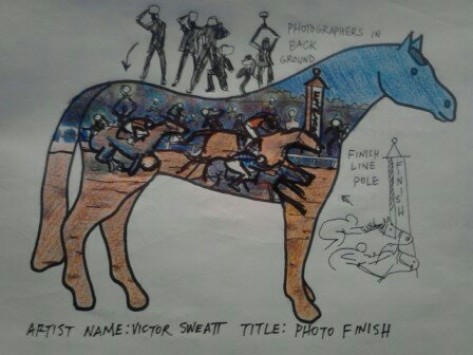 PHOTOGRAPHERS IN
BACK
GROUND
FINISH
LINE
POLE
FINISH
ARTIST NAME: VICTOR SWEATT TITLE: PHOTO FINISH